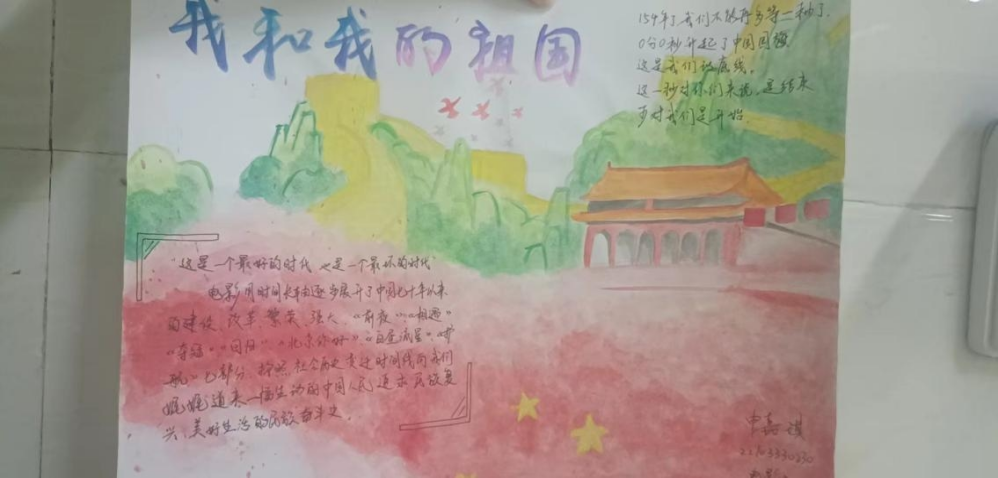 我和我的祖国
154年了,我们不能再多等一秒了.
0分0秒升起了中国国旗
这是我们的底线.
这一秒对你们来说,是结束
而对我们是开始
"这是一个最好的时代 也是一个最坏的时代"
电影用时间长车由逐步展开了中国七十年以来
的建设、改革、繁荣、强大、《前夜》《相遇》
《夺冠》《回归》《北京你好》《白昼流星》《护
航》七部分.按照社会历史变迁时间线向我们
娓娓道来一幅生动的中国人民追求民族复
兴、美好生活的民族奋斗史.